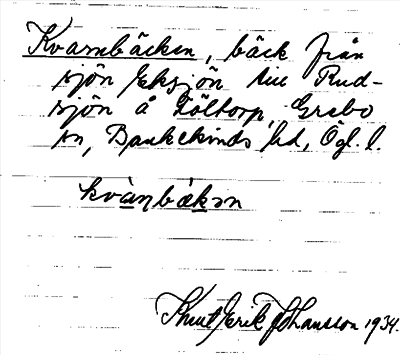 Kvarnbäcken, bäck från
sjön Eksjön till Rud-
sjön å Löltorp, Grebo
sn, Bankekinds hd, Ögl. l.
kvànbäkən
Knut Erik Johansson 1934.